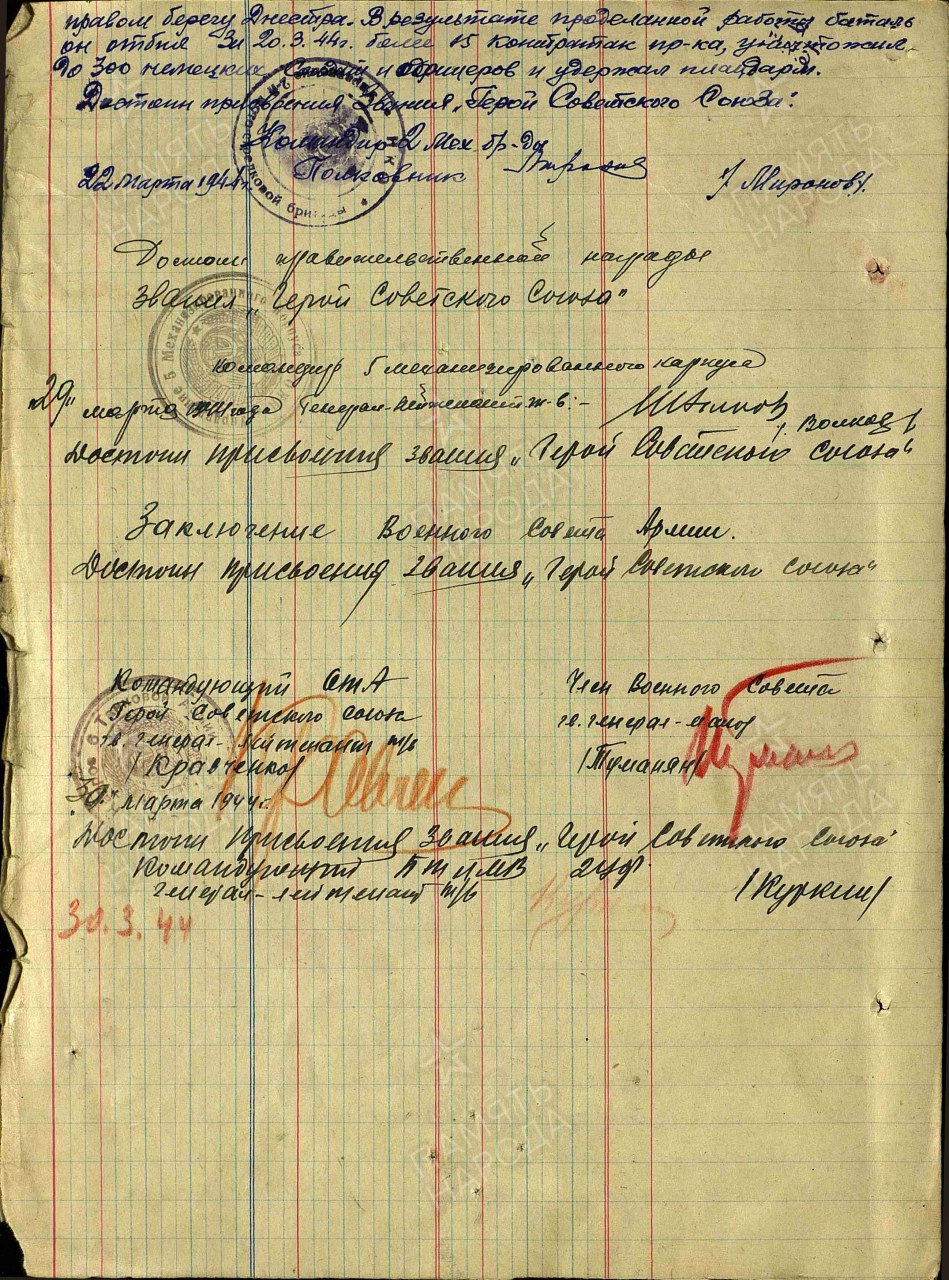 правом берегу Днестра. В результате проделанной работы баталь
он отбил За 20.3.44г. более 15 контратак пр-ка, уничтожил
до 300 немецких солдат и офицеров и удержал плацдарм.
Достоин присвоения звания „Герой Советского Союза".
Командир 2 мех бр-ды
Полковник /Миронов/.
22 марта 1944г.
Достоин правительственной награды
звания „Герой Советского Союза"
Командир 5 механизированного корпуса
„29" марта 1944 года Генерал-лейтенант т-в:- /Волков/
Достоин присвоения звания „Герой Советский Союза"
Заключение Военного Совета Армии.
Достоин присвоения звания „Герой Советского Союза"
Командующий 6тА Член Военного Совета
Герой Советского Союза гв. генерал-майор
гв. генерал-лейтенант т/в /Туманян/
/Кравченко/
"30" марта 1944г.
Достоин присвоения звания „Герой Советского Союза"
Командующий БТ и МВ 2УФ
генерал-лейтенант т/в /Куркин/
30.3.44
ПАМЯТЬ
НАРОДА